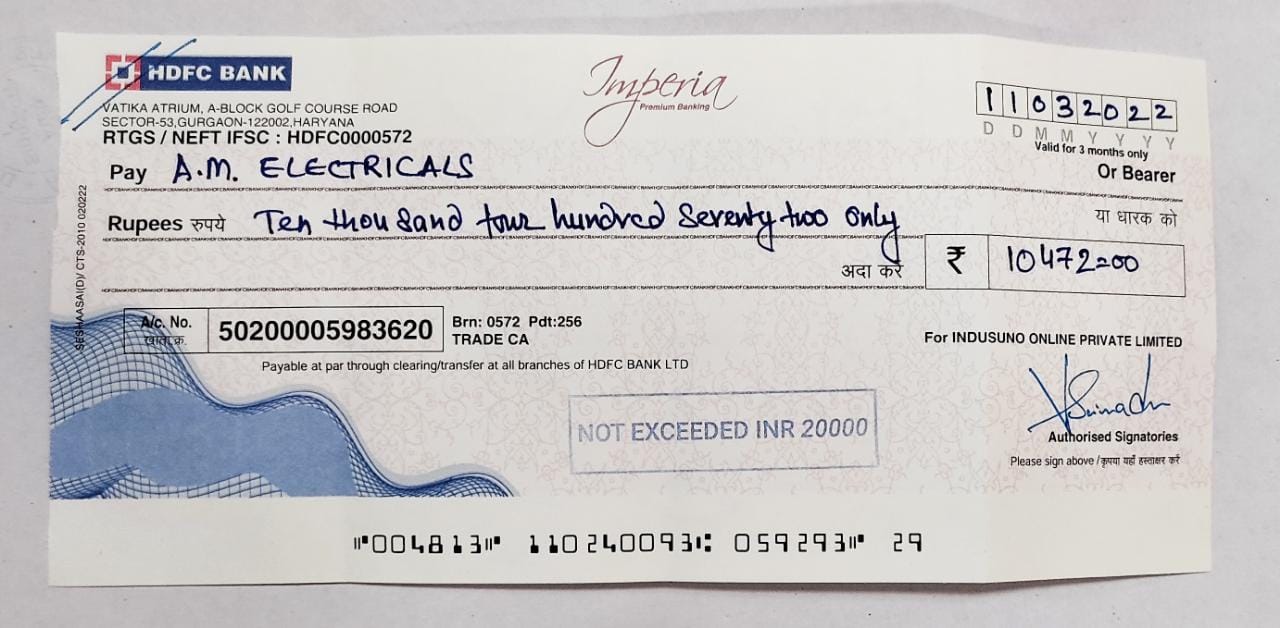 HDFC BANK
Imperia
Premium Banking
VATIKA ATRIUM, A-BLOCK GOLF COURSE ROAD
SECTOR-53,GURGAON-122002,HARYANA
RTGS / NEFT IFSC : HDFC0000572
11032022
D D M M Y Y Y Y
Valid for 3 months only
Pay A.M. ELECTRICALS Or Bearer
Rupees रुपये Ten thousand four hundred seventy two only या धारक को
अदा करें ₹ 10472=00
SESHAASAI(D)/ CTS-2010 020222
A/c. No.
खाता क्र.
50200005983620
Brn: 0572 Pdt:256
TRADE CA
Payable at par through clearing/transfer at all branches of HDFC BANK LTD
For INDUSUNO ONLINE PRIVATE LIMITED
NOT EXCEEDED INR 20000
Authorised Signatories
Please sign above /कृपया यहाँ हस्ताक्षर करें
⑈004813⑈ 110240093⑆ 059293⑈ 29